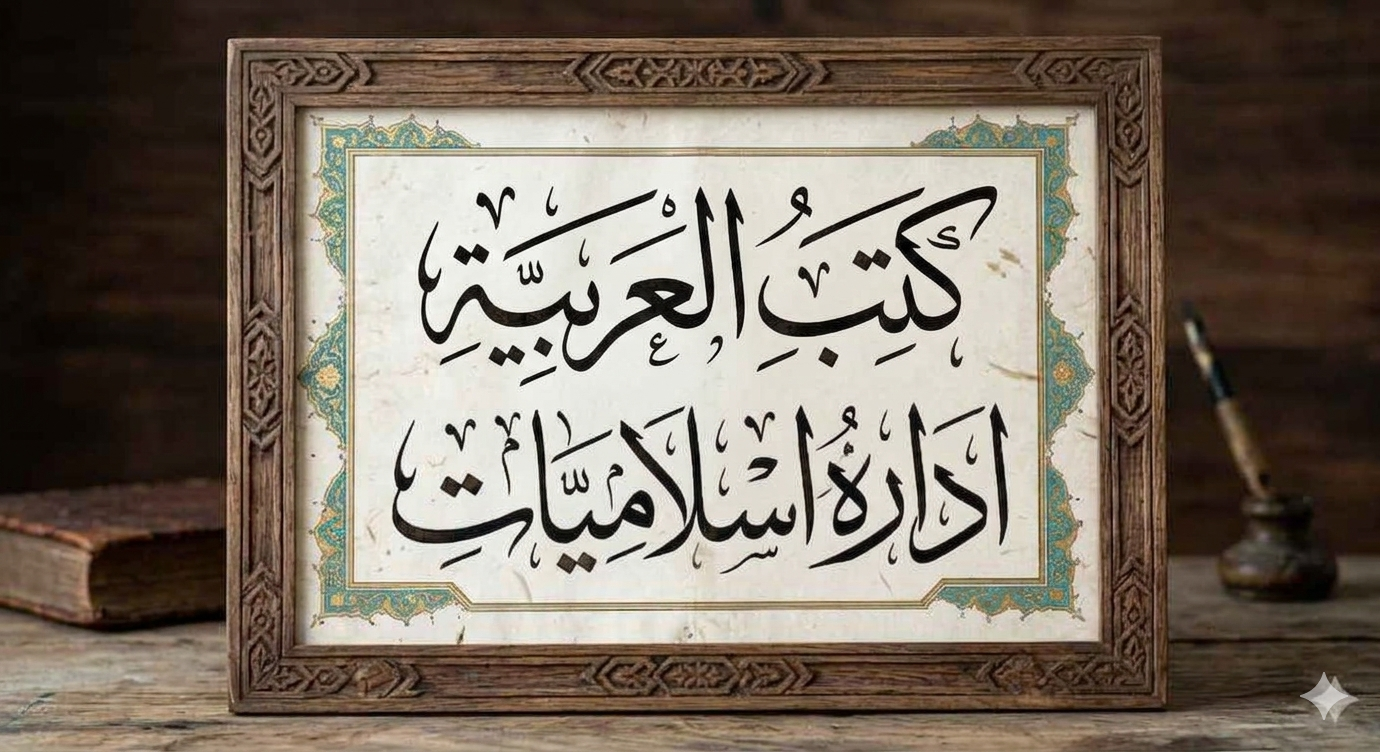 كَتِبُ الْعَرَبِيَّةِ
ادارهُ اسْلامِيَّاتِ